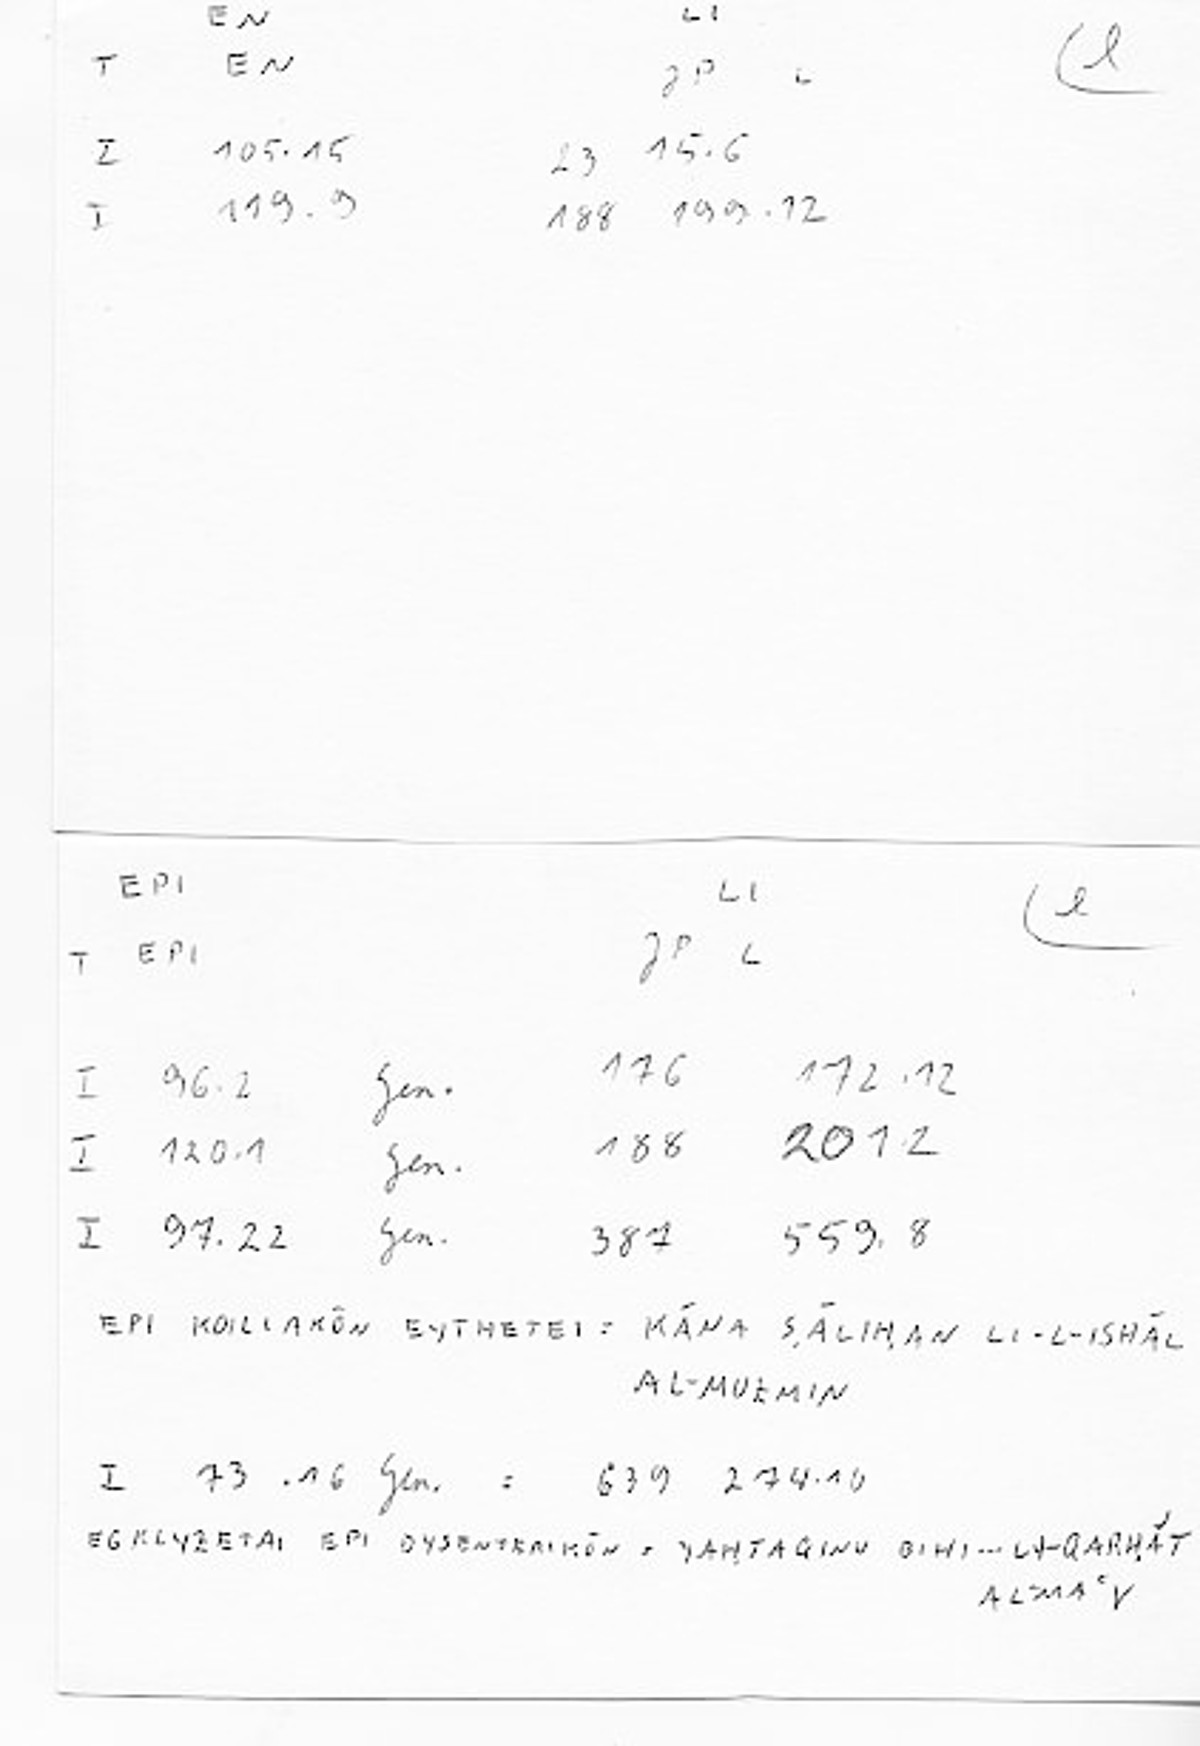 EN LI
T EN JP L (l
I 105.15 23 15.6
I 119.9 188 199.12
EPI LI (l
T EPI JP L
I 96.2 Gen. 176 172.12
I 120.1 Gen. 188 201 2
I 97.22 Gen. 387 559.8
EPI KOILIAKŌN EYTHETEI = KĀNA ṢĀLIḤAN LI-L-ISHĀL
AL-MUZMIN
I 73.16 Gen. = 639 274.10
EGKLYZETAI EPI DYSENTERIKŌN = YAḤTAQINU BIHI... LI-QARḤĀT